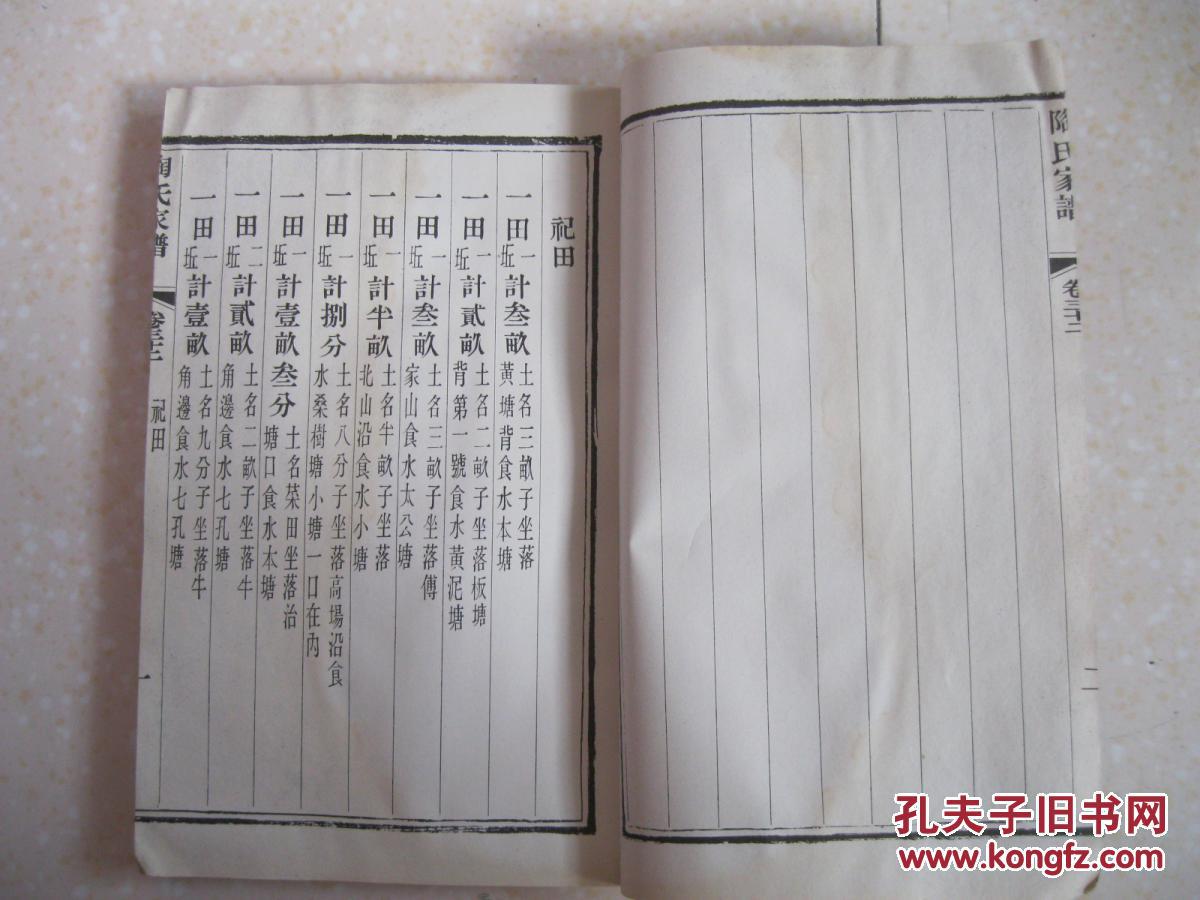 陶氏家譜
卷三十二
二
祀田
一田一坵計叁畝土名三畝子坐落黃塘背食水本塘
一田一坵計貳畝土名二畝子坐落板塘背第一號食水黃泥塘
一田一坵計叁畝土名三畝子坐落傅家山食水太公塘
一田一坵計半畝土名半畝子坐落北山沿食水小塘
一田一坵計捌分土名八分子坐落高場沿食水桑樹塘小塘一口在內
一田一坵計壹畝叁分土名菜田坐落治塘口食水本塘
一田二坵計貳畝土名二畝子坐落牛角邊食水七孔塘
一田一坵計壹畝土名九分子坐落牛角邊食水七孔塘
陶氏家譜
卷三十二
祀田
一
孔夫子旧书网
www.kongfz.com